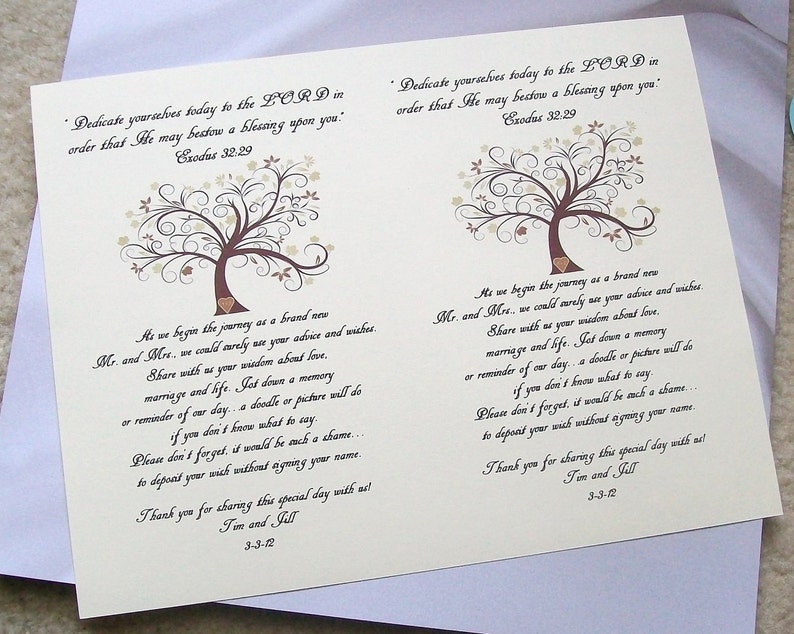 "Dedicate yourselves today to the LORD in
order that He may bestow a blessing upon you."
Exodus 32:29
As we begin the journey as a brand new
Mr. and Mrs., we could surely use your advice and wishes.
Share with us your wisdom about love,
marriage and life. Jot down a memory
or reminder of our day...a doodle or picture will do
if you don't know what to say.
Please don't forget, it would be such a shame...
to deposit your wish without signing your name.
Thank you for sharing this special day with us!
Tim and Jill
3-3-12
"Dedicate yourselves today to the LORD in
order that He may bestow a blessing upon you."
Exodus 32:29
As we begin the journey as a brand new
Mr. and Mrs., we could surely use your advice and wishes.
Share with us your wisdom about love,
marriage and life. Jot down a memory
or reminder of our day...a doodle or picture will do
if you don't know what to say.
Please don't forget, it would be such a shame...
to deposit your wish without signing your name.
Thank you for sharing this special day with us!
Tim and Jill
3-3-12